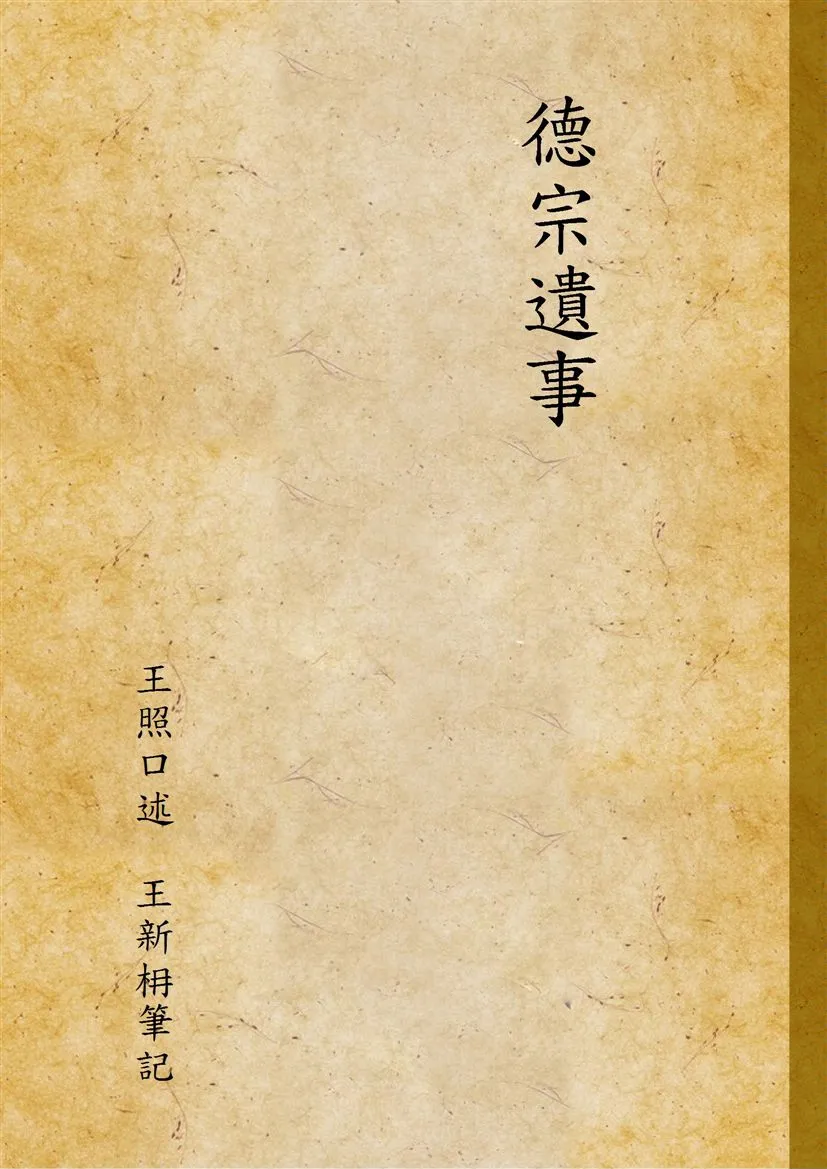 德宗遺事
王照口述 王新枏筆記